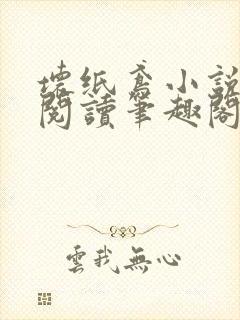 壞紙鳶小說
閱讀筆趣閣
雲我無心